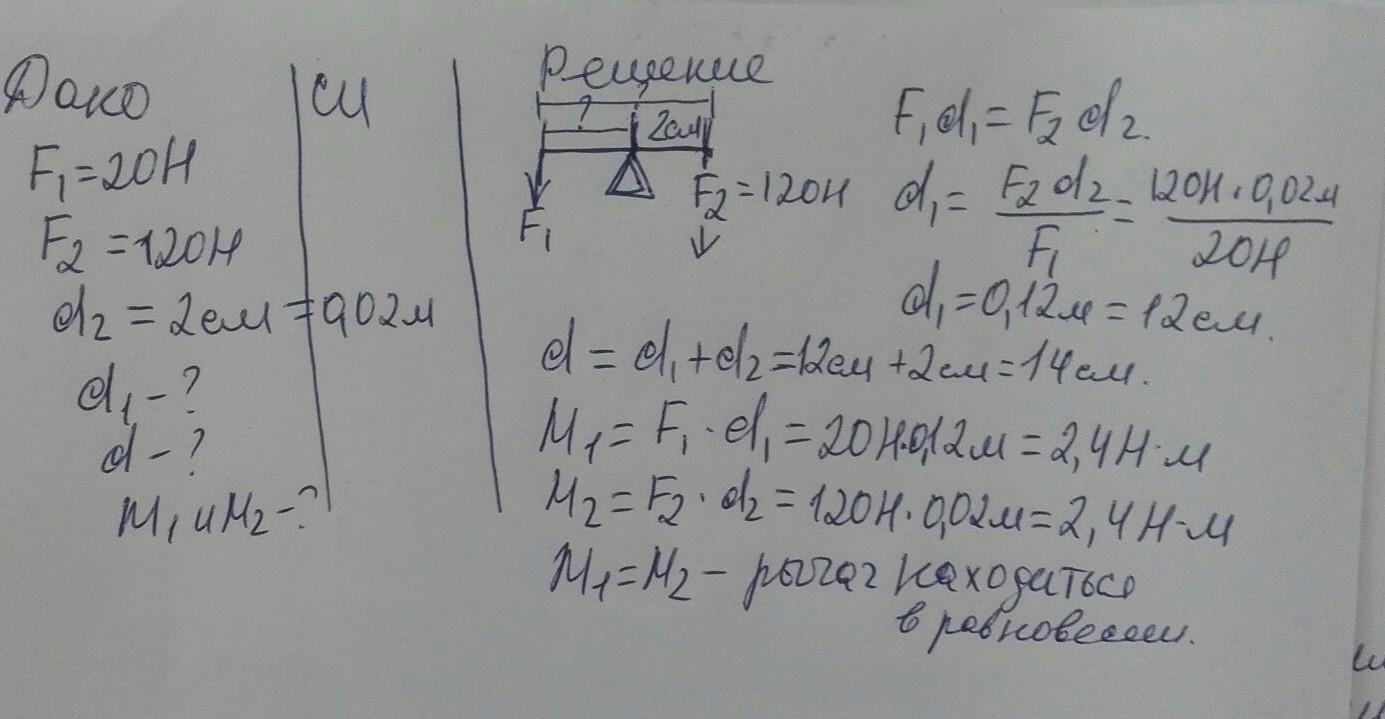 Дано
СИ
F₁=20Н
F₂=120Н
d₂=2см=0,02м
d₁-?
d-?
M₁ и M₂-?
Рещение
?
2см
F₁
F₂=120Н
F₁d₁=F₂d₂.
d₁=F₂d₂/F₁=120Н·0,02м/20Н
d₁=0,12м=12см.
d=d₁+d₂=12см+2см=14см.
M₁=F₁·d₁=20Н·0,12м=2,4Н·м
M₂=F₂·d₂=120Н·0,02м=2,4Н·м
M₁=M₂ – рычаг находиться
в равновесии.